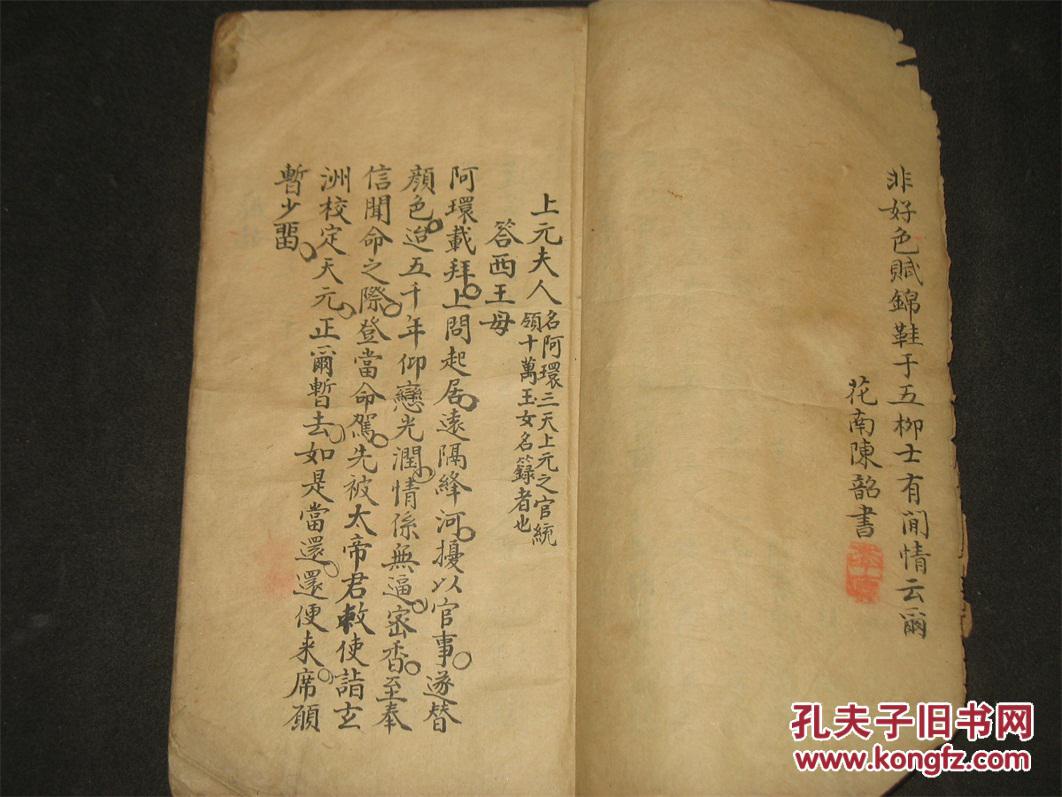 非好色賦錦鞋于五柳士有閒情云爾
花南陳韶書
上元夫人
名阿環三天上元之官統
領十萬玉女名籙者也
答西王母
阿環載拜上問起居遠隔絳河擾以官事遂替
顏色迨五千年仰戀光潤情係無逼密香至奉
信聞命之際登當命駕先被太帝君敕使詣玄
洲校定天元正爾暫去如是當還還便来席願
暫少畱
孔夫子旧书网
www.kongfz.com